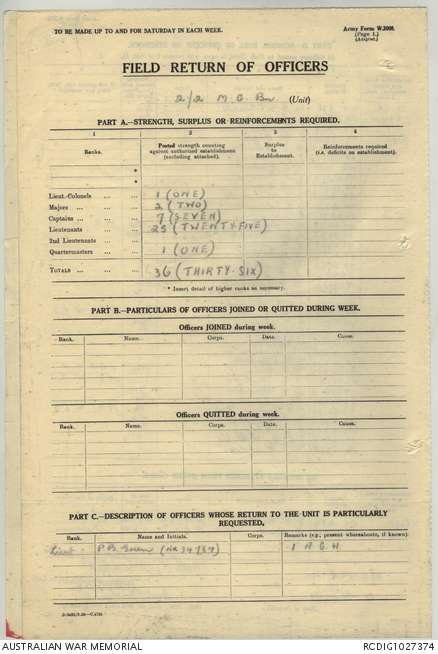 TO BE MADE UP TO AND FOR SATURDAY IN EACH WEEK.
Army Form W.3008.
(Page 1.)
(Adapted.)
FIELD RETURN OF OFFICERS
2/2 M G Bn (Unit)
PART A.—STRENGTH, SURPLUS OR REINFORCEMENTS REQUIRED.
1 2 3 4
Ranks. Posted strength counting against authorized establishment (excluding attached). Surplus to Establishment. Reinforcements required (i.e. deficits on establishment).
*
*
Lieut.-Colonels ... ... 1 (ONE)
Majors ... ... ... 2 (TWO)
Captains ... ... ... 7 (SEVEN)
Lieutenants ... ... 25 (TWENTY-FIVE)
2nd Lieutenants ... ...
Quartermasters ... ... 1 (ONE)
TOTALS ... ... ... 36 (THIRTY-SIX)
* Insert detail of higher ranks as necessary.
PART B.—PARTICULARS OF OFFICERS JOINED OR QUITTED DURING WEEK.
Officers JOINED during week.
Rank. Name. Corps. Date. Cause.
Officers QUITTED during week.
Rank. Name. Corps. Date. Cause.
PART C.—DESCRIPTION OF OFFICERS WHOSE RETURN TO THE UNIT IS PARTICULARLY
REQUESTED.
Rank. Name and Initials. Corps. Remarks (e.g., present whereabouts, if known).
Lieut. P.B. 1 A G H
AUSTRALIAN WAR MEMORIAL
RCDIG1027374